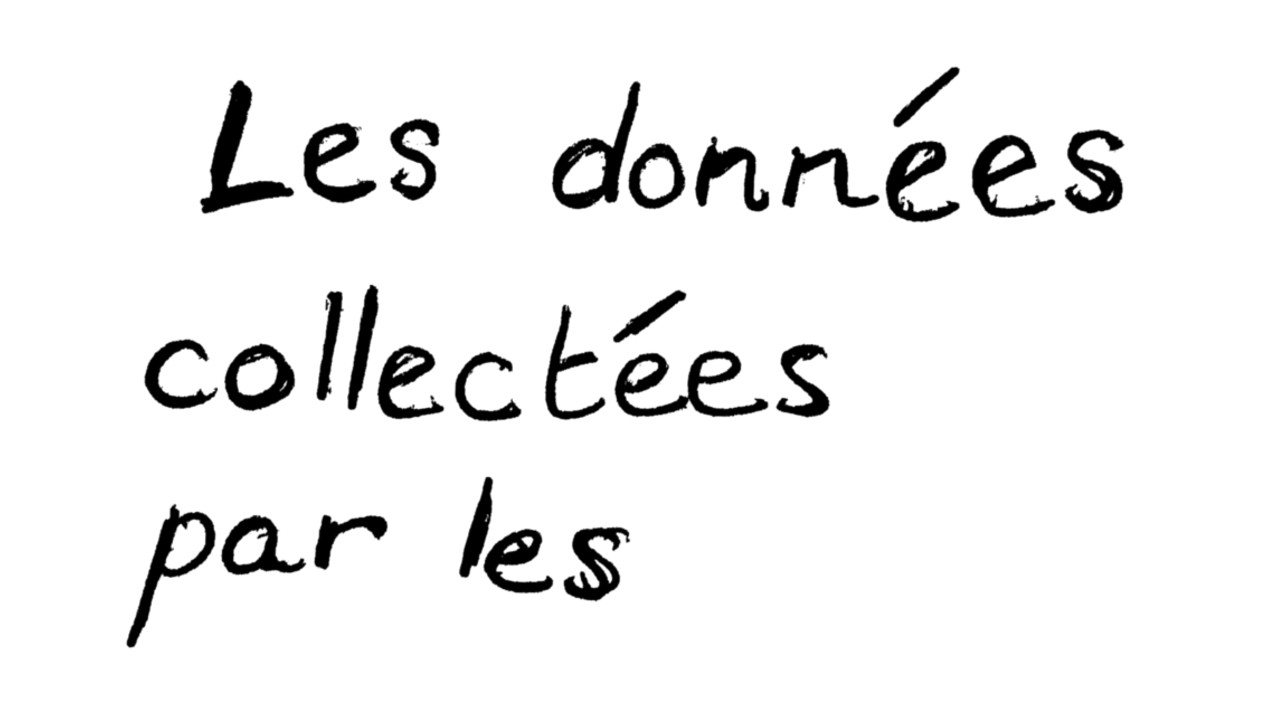 Les données
collectées
par les